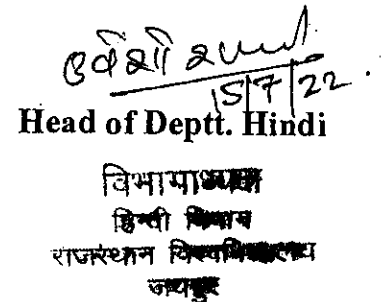 उर्वशी शर्मा
15/7/22.
Head of Deptt. Hindi
विभागाध्यक्ष
हिन्दी विभाग
राजस्थान विश्वविद्यालय
जयपुर